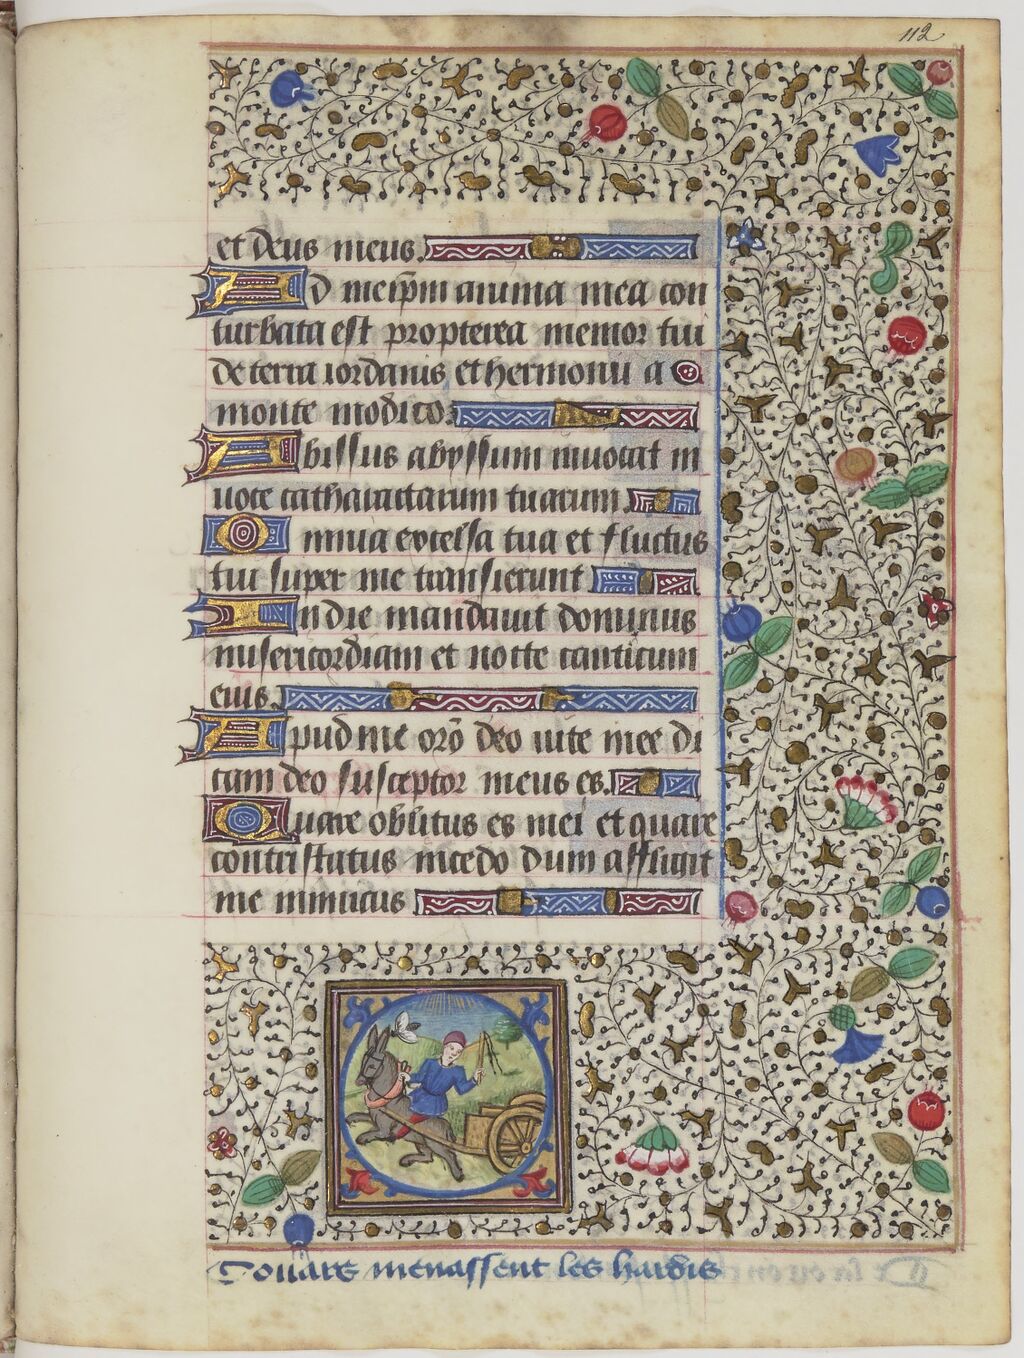 112
et deus meus.
Ad meip̄m anima mea con
turbata est propterea memor tui
de terra iordanis et hermonii a
monte modico.
Abissus abyssum inuocat in
uoce catharactarum tuarum.
Omnia excelsa tua et fluctus
tui super me transierunt
In die mandauit dominus
misericordiam et nocte canticum
eius.
Apud me orō deo uite mee di
cam deo susceptor meus es.
Quare oblitus es mei et quare
contristatus incedo dum affligit
me inimicus
Couars menassent les hardis